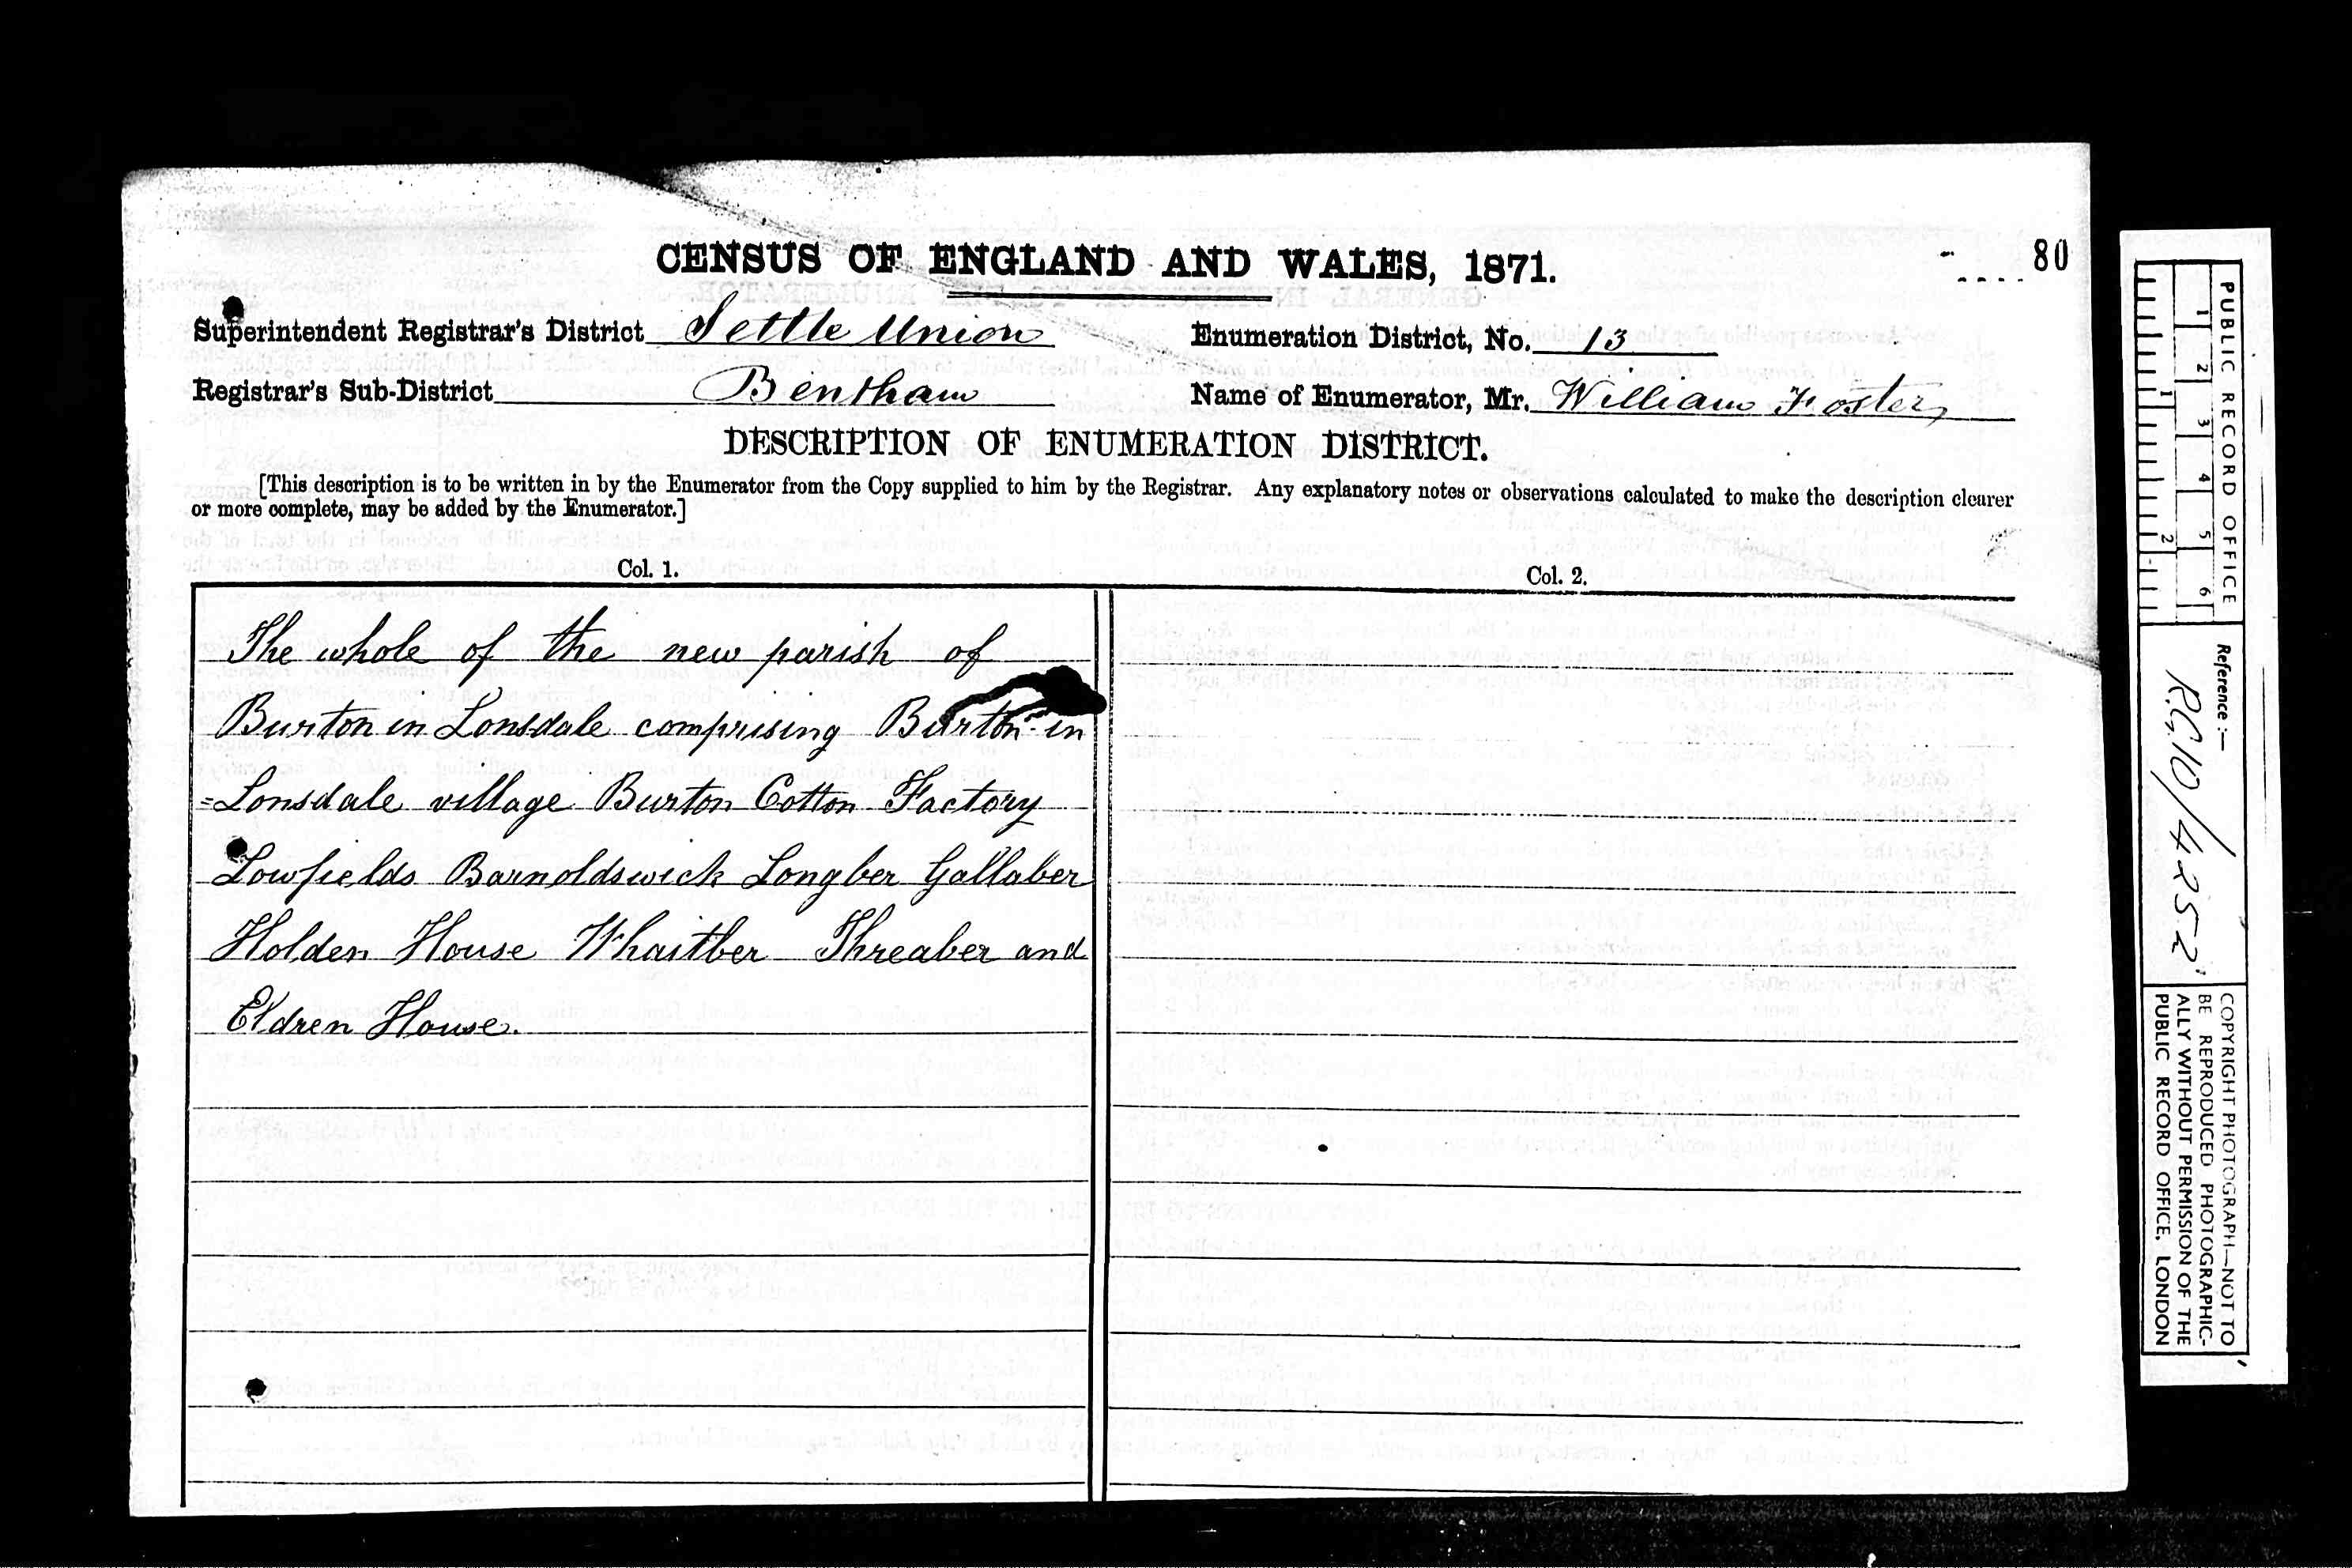 CENSUS OF ENGLAND AND WALES, 1871.
80
Superintendent Registrar's District Settle Union
Enumeration District, No. 13
Registrar's Sub-District Bentham
Name of Enumerator, Mr. William Foster
DESCRIPTION OF ENUMERATION DISTRICT.
[This description is to be written in by the Enumerator from the Copy supplied to him by the Registrar. Any explanatory notes or observations calculated to make the description clearer
or more complete, may be added by the Enumerator.]
Col. 1.
Col. 2.
The whole of the new parish of
Burton in Lonsdale comprising Burton-in
=Lonsdale village Burton Cotton Factory
Lowfields Barnoldswick Longber Gallaber
Holden House Whaitber Threaber and
Eldren House.
PUBLIC RECORD OFFICE
1 2 3 4 5 6
1 2
Reference :-
R.G. 10/4252
COPYRIGHT PHOTOGRAPH—NOT TO
BE REPRODUCED PHOTOGRAPHIC-
ALLY WITHOUT PERMISSION OF THE
PUBLIC RECORD OFFICE, LONDON